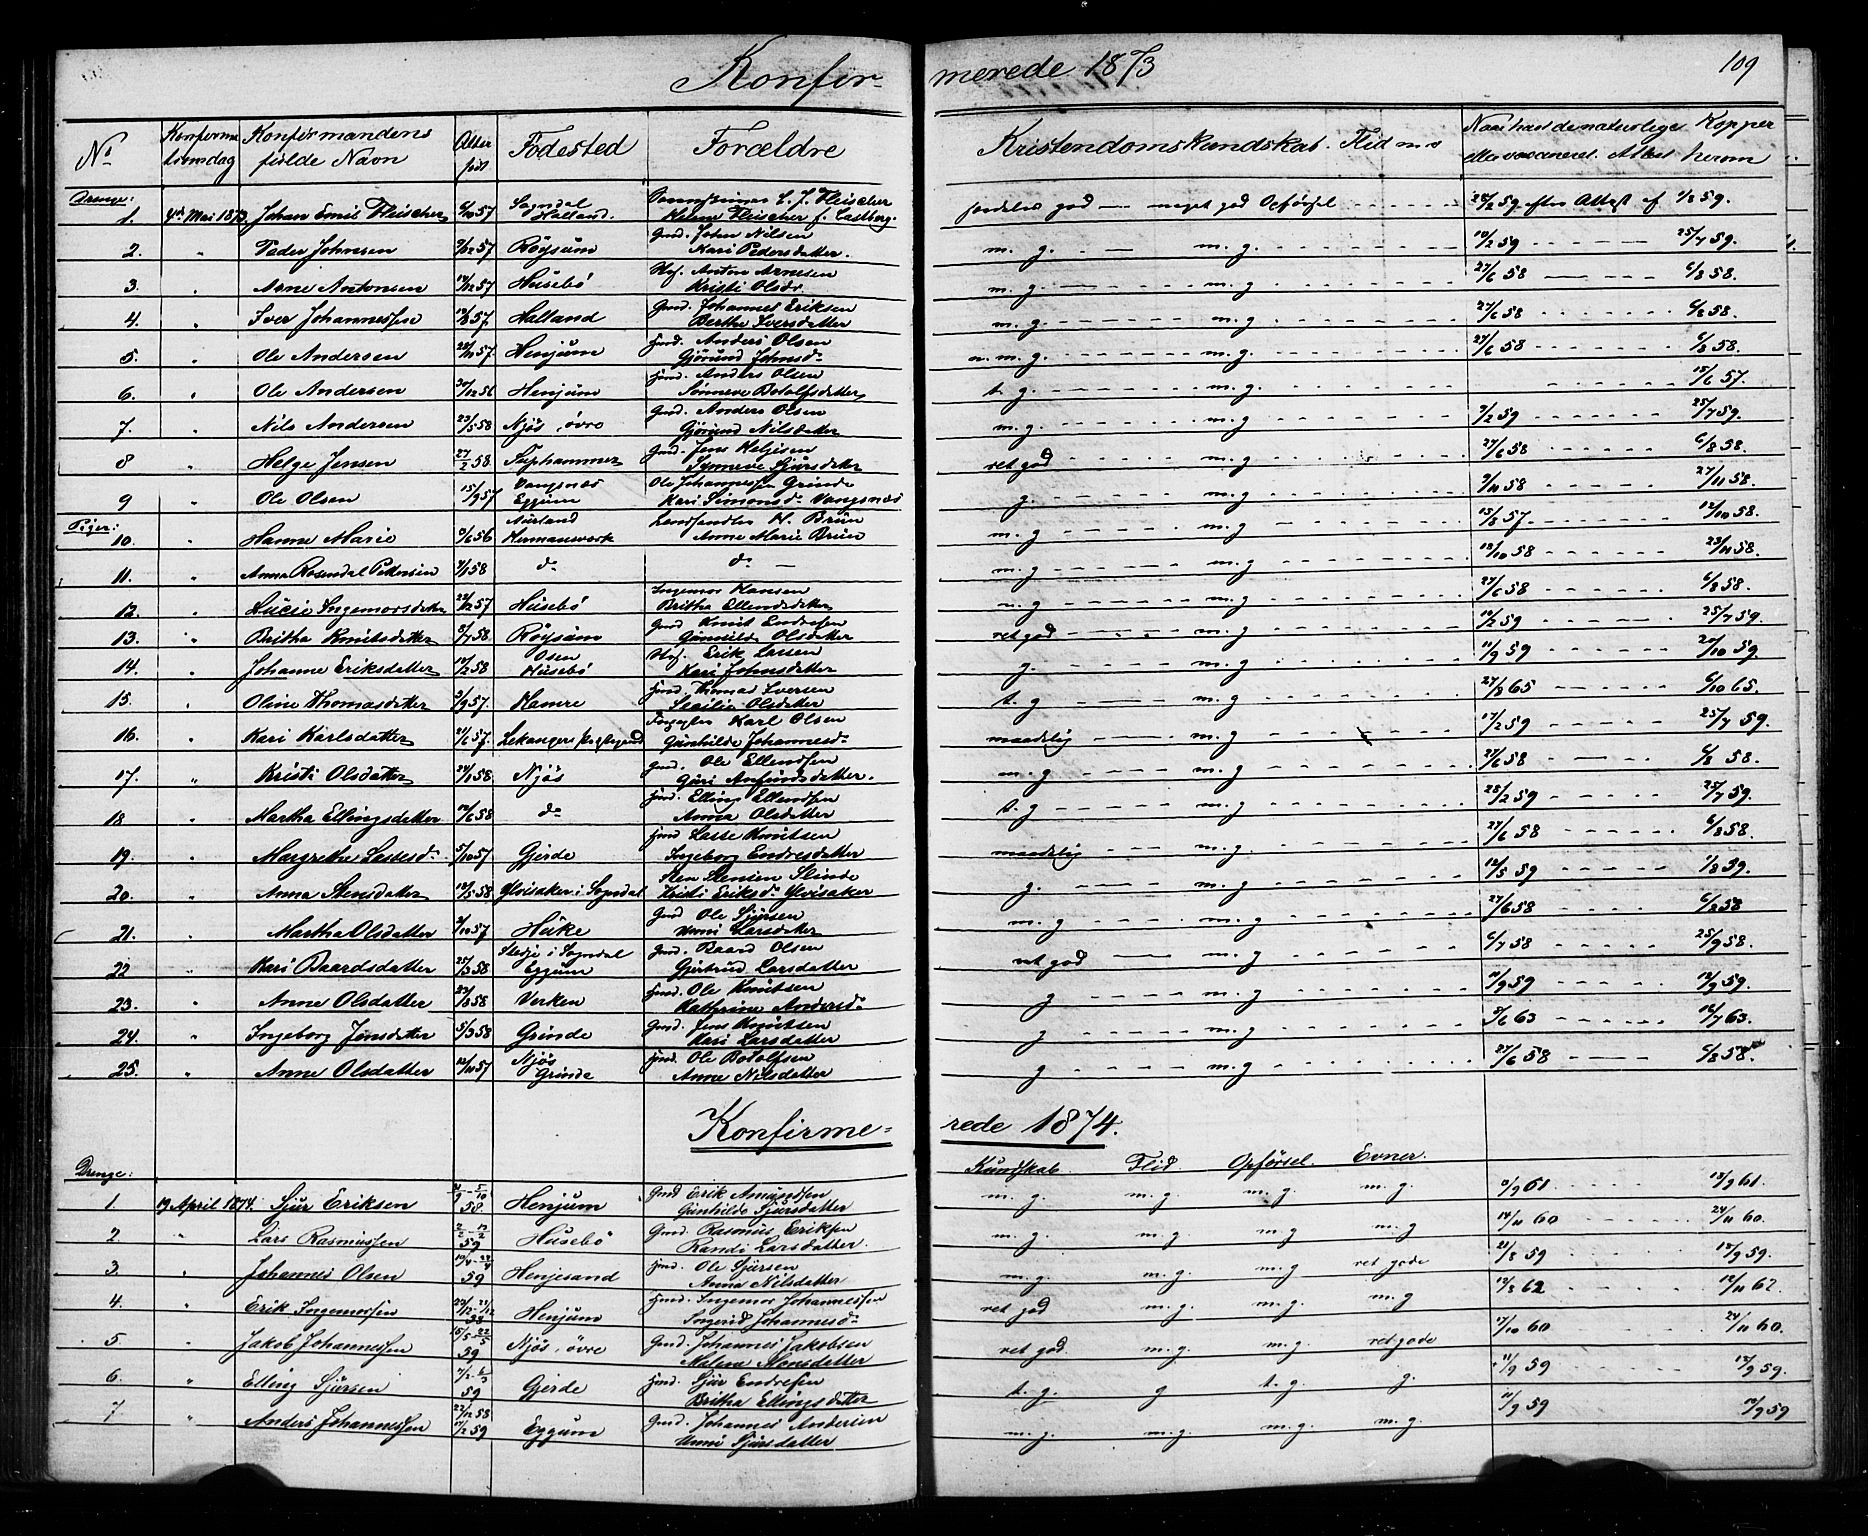 Konfirmerede 1873
109
No
Konfirmationsdag
Konfirmandens fulde Navn
Alder født
Fødested
Forældre
Kristendomskundskab. Flid m. v
Naar havt de naturlige Kopper eller vaccineret. Attest herom
Drenge:
1. 4de Mai 1873. Johan Emil Fleischer 57 Sogndal Halland. L. J. Fleischer Helene Fleischer f. Castberg. særdeles god — meget god Opførsel 59 efter Attest af 1/8 59.
2. " Peder Johnsen 57 Røysum Gmd. John Nilsen Kari Pedersdatter. m. g. — m. g. 10/2 59 25/7 59.
3. " Arne Antonsen 14/12 57 Husebø Anton Arnesen Kristi Olsdr. m. g. m. g 27/6 58 6/8 58.
4. " Iver Johannesen 57 Halland Gmd. Johannes Eriksen Berthe Iversdatter m. g. m. g. 27/6 58 6/8 58.
5. " Ole Andersen 57. Henjum Gmd. Anders Olsen Gjørund Johnsd. m. g. m. g. 27/6 58 6/8 58.
6. " Ole Andersen 30/12 56 Henjum Anders Olsen Sønneve Botolfsdatter t. g. m. g. 15/6 57.
7. " Nils Andersen 23/5 58 Njøs, øvre Gmd. Anders Olsen Gjørund Nilsdatter m. g. m. g. 9/2 59 25/7 59.
8 " Helge Jensen 27/2 58. Suphammer Gmd. Jens Heljesen Synneve Sjursdatter ret god m. g. 27/6 58 6/8 58.
9 " Ole Olsen 15/9 57 Vangsnæs Eggum Ole Johannessen Grinde Kari Simonsd. Vangsnæs g. m. g. 58 27/11 58.
Piger:
10. " Hanne Marie 6/56 Aurland Hermansverk H. Brun Anne Marie Brun m. g. m. g 13/8 57. 12/10 58.
11. " Anna Rosendal Pedersen 58 do do — m. g m. g. 19/10 58 23/11 58.
12. " Lucie Ingemorsdatter 57 Husebø Ingemor Hansen Britha Ellendsdatter m. g m. g. 27/6 58 6/8 58.
13. " Britha Knutsdatter 58. Røysum Gmd Knut Endresen Gunhilde Olsdatter ret god m. g 10/2 59 25/7 59.
14. " Johanne Eriksdatter 58 Olsen Husebø Erik Lassen Kari Johnsdatter g. m. g. 11/9 59 20/10 59.
15. " Oline Thomasdatter 9/57. Hamre Thomas Iversen Secilie Olsdatter t. g m. g 27/8 65 6/10 65.
16. " Kari Karlsdatter 6/57. Lekanger Prestegaard Karl Olsen Gunhilde Johannesd. maadelig m. g 17/2 59 25/7 59.
17. " Kristi Olsdatter 58. Njøs Gmd. Ole Ellendsen Guri Anfinnsdatter. m. g m. g. 27/6 58 6/8 58.
18 " Martha Ellingsdatter 10/6 58 do Elling Ellendsen Anna Olsdatter t. g m. g. 28/2 59 25/7 59.
19. " Margrethe Lassesd. 5/10 57 Gjerde Lasse Knutsen Ingeborg Endresdatter maadelig m. g. 27/6 58 6/8 58.
20. " Anna Stensdatter 5/58 Ylvisaker i Sogndal Sten Stensen Slinde Kristi Eriksd. Ylvisaker g. m. g 12/5 59 1/8 59.
21. " Martha Olsdatter 10/57 Huke Gmd Ole Sjursen Unni Larsdatter m. g m. g. 27/6 58 6/8 58
22 " Kari Baardsdatter 25/3 58 Stedje i Sogndal Eggum Gmd. Baard Olsen Gjertrud Larsdatter ret god m. g. 6/7 58 25/9 58.
23. " Anne Olsdatter 23/8 58 Verken Ole Knutsen Kathrine Andersd. g m. g. 11/9 59 12/9 59.
24. " Ingeborg Jensdatter 5/3 58 Grinde Gmd. Jens Knutsen Kari Larsdatter g m. g. 6/63 16/7 63.
25. " Anne Olsdatter 12/11 57 Njøs Grinde Ole Botolfsen Anne Nilsdatter g m. g 27/6 58 6/8 58.
Konfirmerede 1874.
Kundskab. Flid. Opførsel. Evner.
Drenge:
1. 19 April 1874. Sjur Eriksen 58 Henjum Gmd Erik Amundsen Gunhilde Sjursdatter m. g. m. g m. g. m. g. 9/61 12/9 61.
2. " Lars Rasmussen 59 Husebø Gmd. Rasmus Eriksen Randi Larsdatter. m. g. m. g. m. g m. g 14/11 60 24/11 60.
3. " Johannes Olsen 59 Henjesand Ole Sjursen Anna Nilsdatter m. g. m. g. m. g ret gode 21/8 59 12/9 59.
4. " Erik Ingemorsen 58 Henjum Ingemor Johannessen Ingerid Johannesd. ret god m. g. m. g. m. g 12/8 62 12/11 62.
5 " Jakob Johannessen 59 Njøs, øvre Gmd. Johannes Jakobsen Helene Monsdatter ret god. m. g. m. g. ret gode 7/10 60 24/11 60.
6. " Elling Sjursen 59 Gjerde Sjur Endresen Britha Ellingsdatter t. g. g t. g. g. 11/9 59 12/9 59.
7. " Anders Johannessen 22/12 58 17/2 59 Eggum Gmd. Johannes Andersen Unni Sjursdatter m. g. m. g. m. g. m. g. 11/9 59 12/9 59